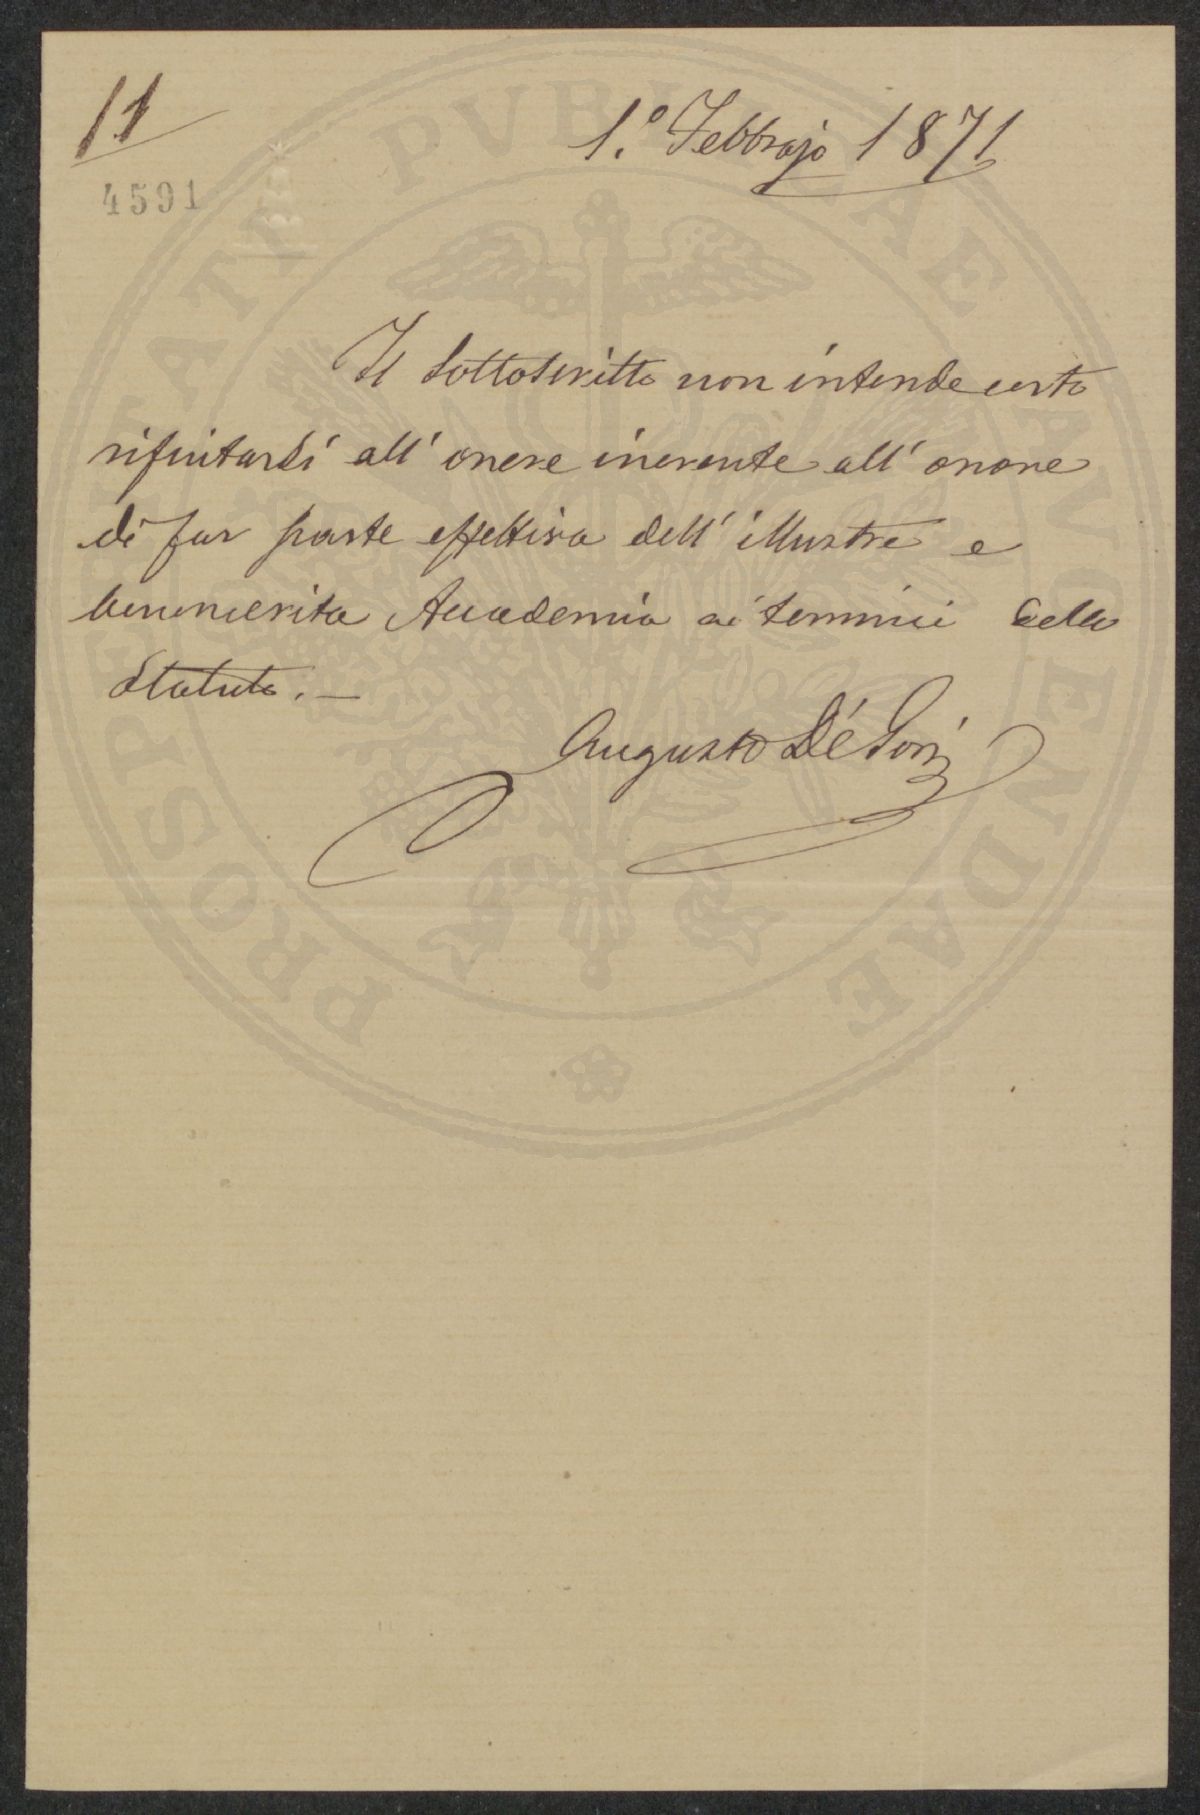 11
4591
1.º Febbrajo 1871
Il sottoscritto non intende certo
rifiutarsi all' onere inerente all' onore
di far parte effettiva dell' illustre e
benemerita Accademia ai termini dello
Statuto. —
Augusto De' Gori
PROSPERITATI PVBLICAE AVGENDAE